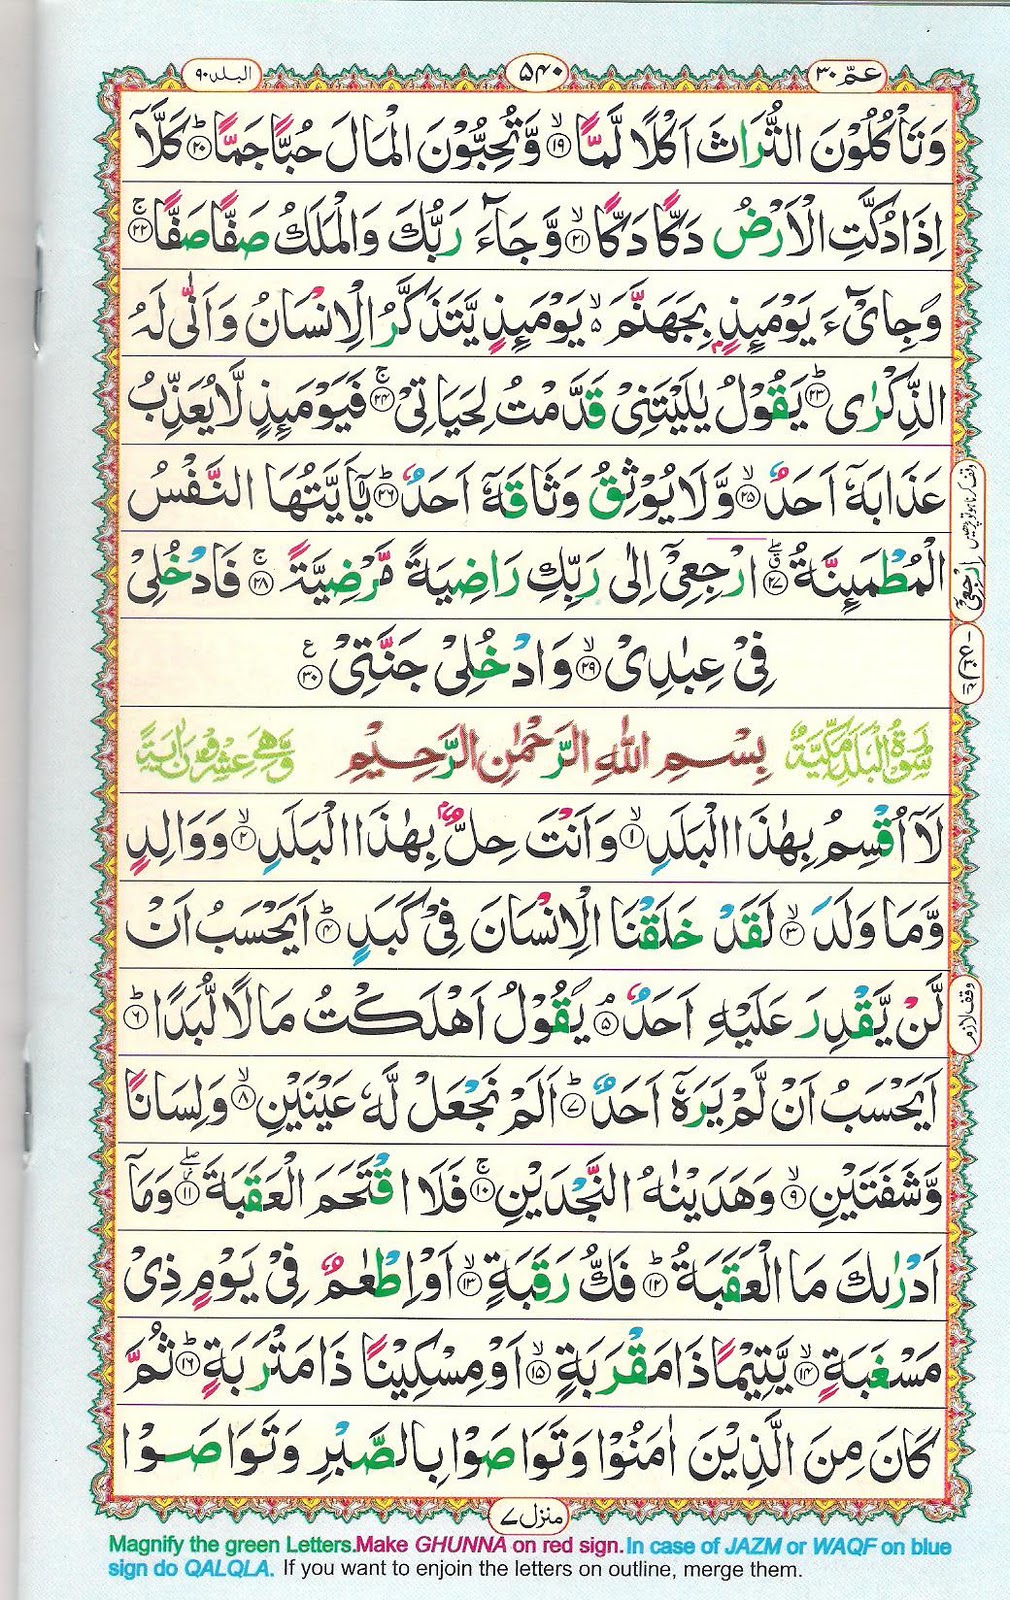 عمّ ٣٠
۵۴۰
البلد ٩٠
وَتَاْكُلُوْنَ التُّرَاثَ اَكْلًا لَّمًّا ۙ‏﴿۱۹﴾ وَّتُحِبُّوْنَ الْمَالَ حُبًّا جَمًّا ؕ‏﴿۲۰﴾ كَلَّاۤ
اِذَا دُكَّتِ الْاَرْضُ دَكًّا دَكًّا ۙ‏﴿۲۱﴾ وَّجَآءَ رَبُّكَ وَالْمَلَكُ صَفًّا صَفًّا ۚ‏﴿۲۲﴾
وَجِایْٓءَ يَوْمَئِذٍۭ بِجَهَنَّمَ ۙ۬ يَوْمَئِذٍ يَّتَذَكَّرُ الْاِنْسَانُ وَاَنّٰى لَهُ
الذِّكْرٰى ؕ‏﴿۲۳﴾ يَقُوْلُ يٰلَيْتَنِىْ قَدَّمْتُ لِحَيَاتِىْ ۚ‏﴿۲۴﴾ فَيَوْمَئِذٍ لَّا يُعَذِّبُ
عَذَابَهٗۤ اَحَدٌ ۙ‏﴿۲۵﴾ وَّلَا يُوْثِقُ وَثَاقَهٗۤ اَحَدٌ ؕ‏﴿۲۶﴾ يٰۤاَيَّتُهَا النَّفْسُ
الْمُطْمَئِنَّةُ ۖۗ‏﴿۲۷﴾ ارْجِعِىْۤ اِلٰى رَبِّكِ رَاضِيَةً مَّرْضِيَّةً ۚ‏﴿۲۸﴾ فَادْخُلِىْ
فِىْ عِبٰدِىْ ۙ‏﴿۲۹﴾ وَادْخُلِىْ جَنَّتِىْ ﴿۳۰﴾ ع
سُوْرَةُ الْبَلَدِ مَكِّيَّةٌ
بِسْمِ اللّٰهِ الرَّحْمٰنِ الرَّحِيْمِ
وَّهِىَ عِشْرُوْنَ اٰيَةً
لَاۤ اُقْسِمُ بِهٰذَا الْبَلَدِ ۙ‏﴿۱﴾ وَاَنْتَ حِلٌّۢ بِهٰذَا الْبَلَدِ ۙ‏﴿۲﴾ وَوَالِدٍ
وَّمَا وَلَدَ ۙ‏﴿۳﴾ لَقَدْ خَلَقْنَا الْاِنْسَانَ فِىْ كَبَدٍ ؕ‏﴿۴﴾ اَيَحْسَبُ اَنْ
لَّنْ يَّقْدِرَ عَلَيْهِ اَحَدٌ ۘ‏﴿۵﴾ يَقُوْلُ اَهْلَكْتُ مَالًا لُّبَدًا ؕ‏﴿۶﴾
اَيَحْسَبُ اَنْ لَّمْ يَرَهٗۤ اَحَدٌ ؕ‏﴿۷﴾ اَلَمْ نَجْعَلْ لَّهٗ عَيْنَيْنِ ۙ‏﴿۸﴾ وَلِسَانًا
وَّشَفَتَيْنِ ۙ‏﴿۹﴾ وَهَدَيْنٰهُ النَّجْدَيْنِ ۚ‏﴿۱۰﴾ فَلَا اقْتَحَمَ الْعَقَبَةَ ۖ‏﴿۱۱﴾ وَمَاۤ
اَدْرٰٮكَ مَا الْعَقَبَةُ ؕ‏﴿۱۲﴾ فَكُّ رَقَبَةٍ ۙ‏﴿۱۳﴾ اَوْ اِطْعٰمٌ فِىْ يَوْمٍ ذِىْ
مَسْغَبَةٍ ۙ‏﴿۱۴﴾ يَّتِيْمًا ذَا مَقْرَبَةٍ ۙ‏﴿۱۵﴾ اَوْ مِسْكِيْنًا ذَا مَتْرَبَةٍ ؕ‏﴿۱۶﴾ ثُمَّ
كَانَ مِنَ الَّذِيْنَ اٰمَنُوْا وَتَوَاصَوْا بِالصَّبْرِ وَتَوَاصَوْا
وقف لازم
منزل ٧
Magnify the green Letters.Make GHUNNA on red sign.In case of JAZM or WAQF on blue
sign do QALQLA. If you want to enjoin the letters on outline, merge them.